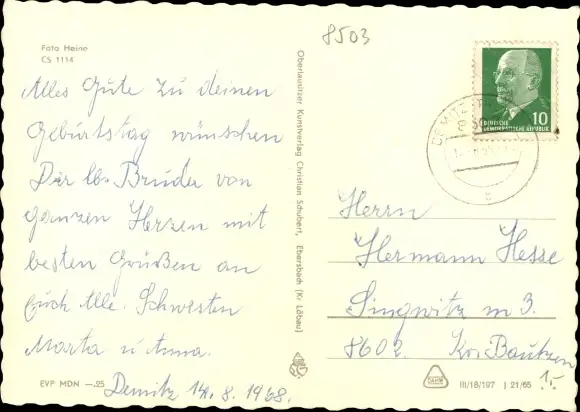 8503
Foto Heine
CS 1114
Alles Gute zu deinen
Geburtstag wünschen
Dir lb. Bruder von
ganzen Herzen mit
besten Grüßen an
Euch Alle. Schwestern
Marta u Anna.
Demitz 14. 8. 1968.
EVP MDN —.25
Oberlausitzer Kunstverlag Christian Schubert, Ebersbach (Kr. Löbau)
10
DEUTSCHE
DEMOKRATISCHE REPUBLIK
DEMITZ
Herrn
Hermann Hesse
Singwitz
8602. Kr. Bautzen
1.-
III/18/197 J 21/65